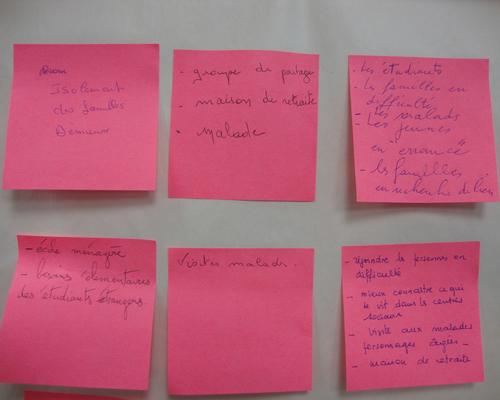 Isolement
des familles
- groupe de partage
- maison de retraite
- malade
- Les étudiants
- Les familles en
difficultés
- Les malads
- Les jeunes
en "errance"
- les familles
en recherche de lien
- école ménagère
- besoins élémentaires
des étudiants étrangers.
Visites malades.
- rejoindre les personnes en
difficulté
- mieux connaître ce qui
se vit dans les centres
sociaux
- visite aux malades
personnes âgées -
- maison de retraite